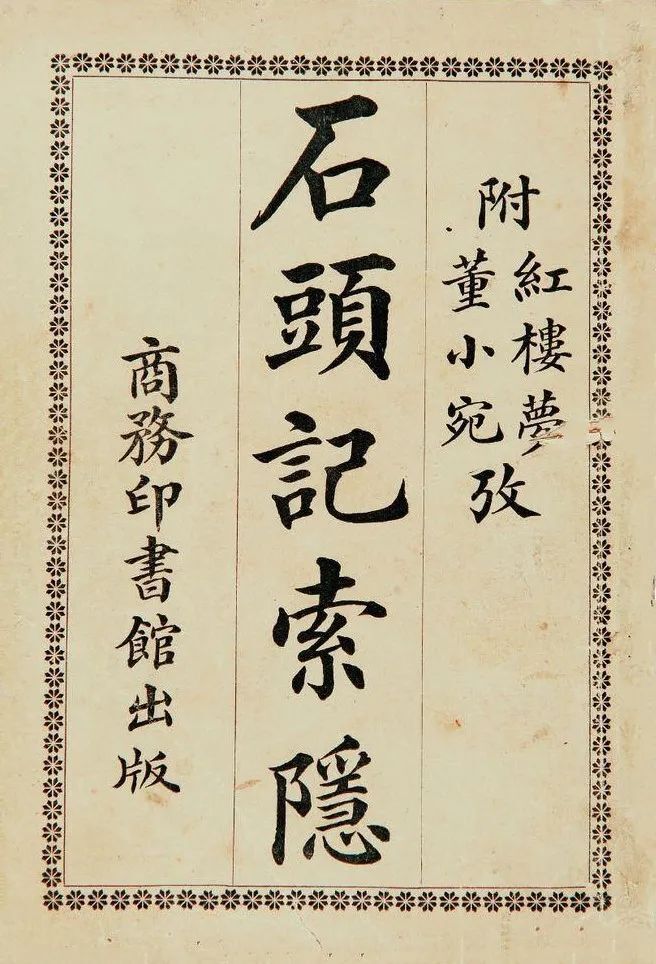 附紅樓夢董小宛攷
石頭記索隱
商務印書館出版